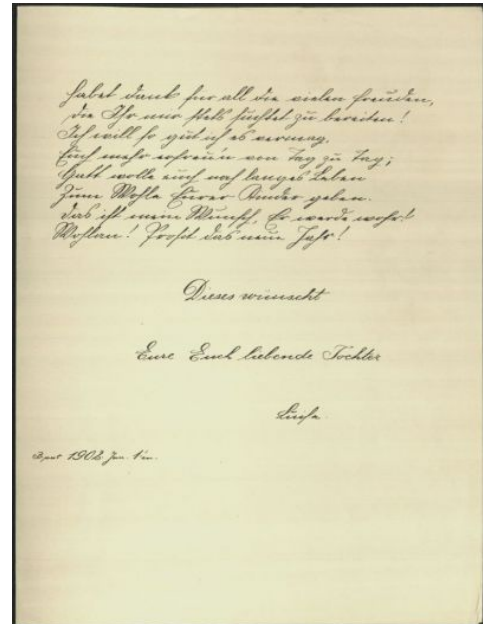 Habet Dank für all die vielen Freuden,
die Ihr mir stets suchtet zu bereiten!
Ich will so gut ich es vermag,
Euch mehr erfreu'n von Tag zu Tag;
Gott wolle euch noch langes Leben
Zum Wohle Eurer Kinder geben.
Das ist mein Wunsch, Er werde wahr!
Wohlan! Prosit das neue Jahr!
Dieses wünscht
Eure Euch liebende Tochter
Luise
1902 Jan. 1